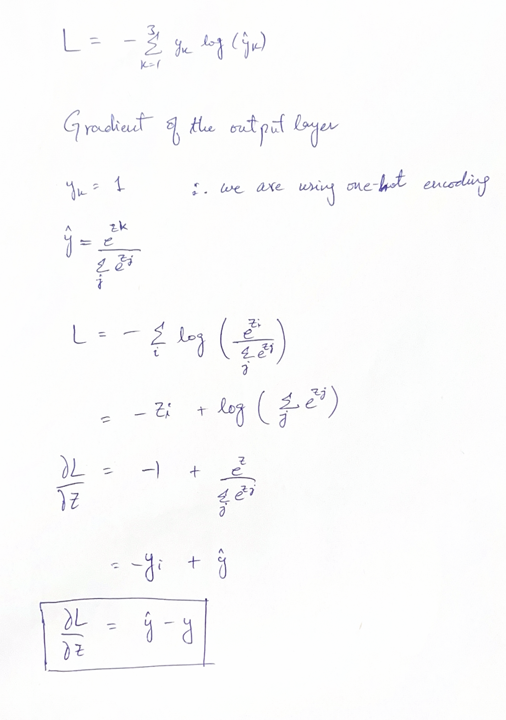 L = - Σ_{k=1}^{3} y_k log (ŷ_k)
Gradient of the output layer
y_k = 1 ∴ we are using one-hot encoding
ŷ = e^{zk} / Σ_j e^{z_j}
L = - Σ_i log ( e^{z_i} / Σ_j e^{z_j} )
= - z_i + log ( Σ_j e^{z_j} )
∂L/∂z = -1 + e^z / Σ_j e^{z_j}
= -y_i + ŷ
∂L/∂z = ŷ - y